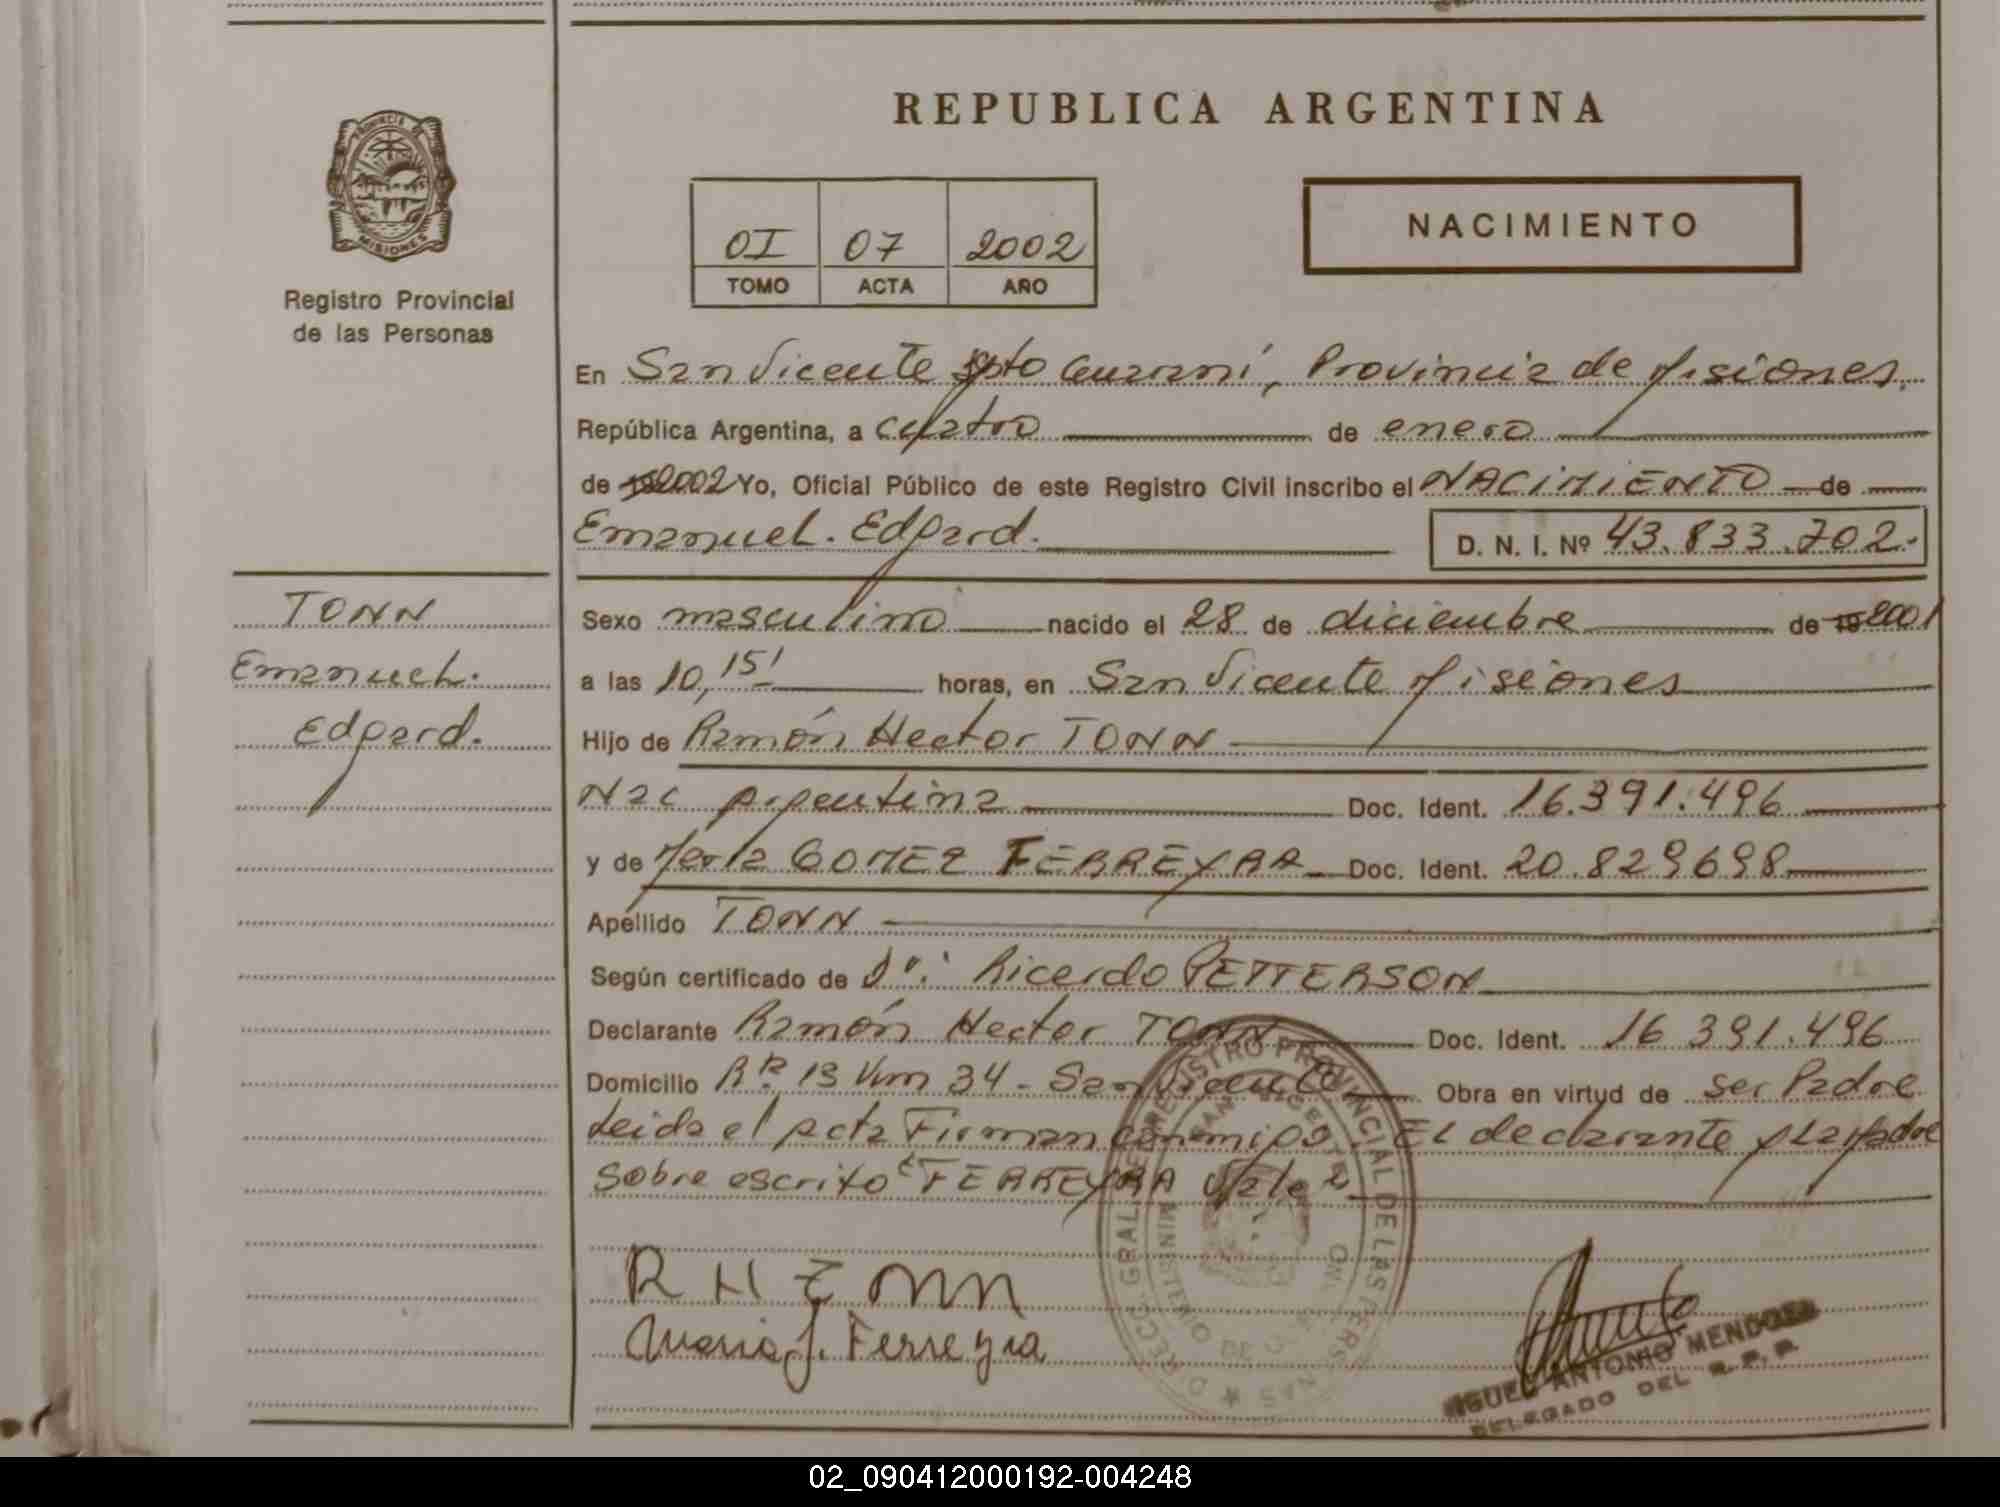 REPUBLICA ARGENTINA
PROVINCIA DE
MISIONES
Registro Provincial
de las Personas
OI 07 2002
TOMO ACTA AÑO
NACIMIENTO
En San Vicente Dpto Guaraní, Provincia de Misiones,
República Argentina, a cuatro de enero
de 19 2002 Yo, Oficial Público de este Registro Civil inscribo el NACIMIENTO de
Emanuel. Edgard. D. N. I. Nº 43.833.702.
TONN
Emanuel.
Edgard.
Sexo masculino nacido el 28 de diciembre de 19 2001
a las 10,15' horas, en San Vicente Misiones
Hijo de Ramón Hector TONN
Nac argentina Doc. Ident. 16.391.496
y de María GOMEZ FERREYRA Doc. Ident. 20.829698
Apellido TONN
Según certificado de Ricardo PETTERSON
Declarante Ramón Hector TONN Doc. Ident. 16 391.496
Domicilio 13 Km 34 - San Vicente Obra en virtud de ser Padre
Leida el acta Firman conmigo. El declarante y la Madre
Sobre escrito "FERREYRA Vale"
R H TONN
Maria J. Ferreyra
DIRECC. GRAL. DEL REGISTRO PROVINCIAL DE LAS PERSONAS
SAN VICENTE
MINISTERIO DE
MIGUEL ANTONIO MENDOZA
DELEGADO DEL R. P. P.
02_090412000192-004248